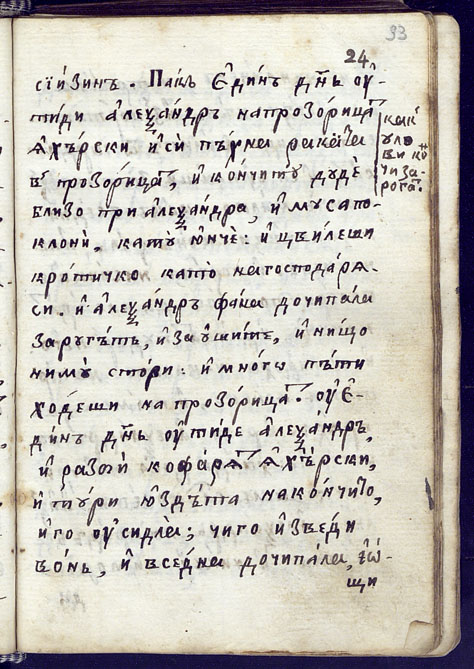 33
24
сїи́зинъ. Пакъ Є҆ди́нъ дн҃ь оу҆-
тиди а҆леѯа́ндръ на прозо́рица
ꙗ҆хъ́рски и҆ си пъ́хна рака́та
въ прозо́рица, и҆ ко́нчиту дуде̂
близо при а҆леѯа́ндра, и҆ мусапо-
клони̂, кату̀ ю҆нче: и҆ цвилеши
кро́тичко като̀ на господа́рѧ-
си. и҆ а҆леѯа́ндръ фана дочипа́ла
за ругътъ, и҆ за оу҆шите, и҆ нищо
ниму̀ стори: и҆ мно́гѡ пъти
хо́деши на прозо́рица. оу҆ є҆-
ди́нъ дн҃ь оу҆ти́де а҆леѯа́ндръ,
и҆ разби̂ кофа́рѧ ꙗ҆хъ́рски,
и҆ тури ю҆здъ́та на ко́нчито,
и҆ го оу҆сидла; чиго и҆зведи
вонь, и҆ вседна дочипа́ла, той-
щи
какъ
улѡ
ви ко
чи за
рога.